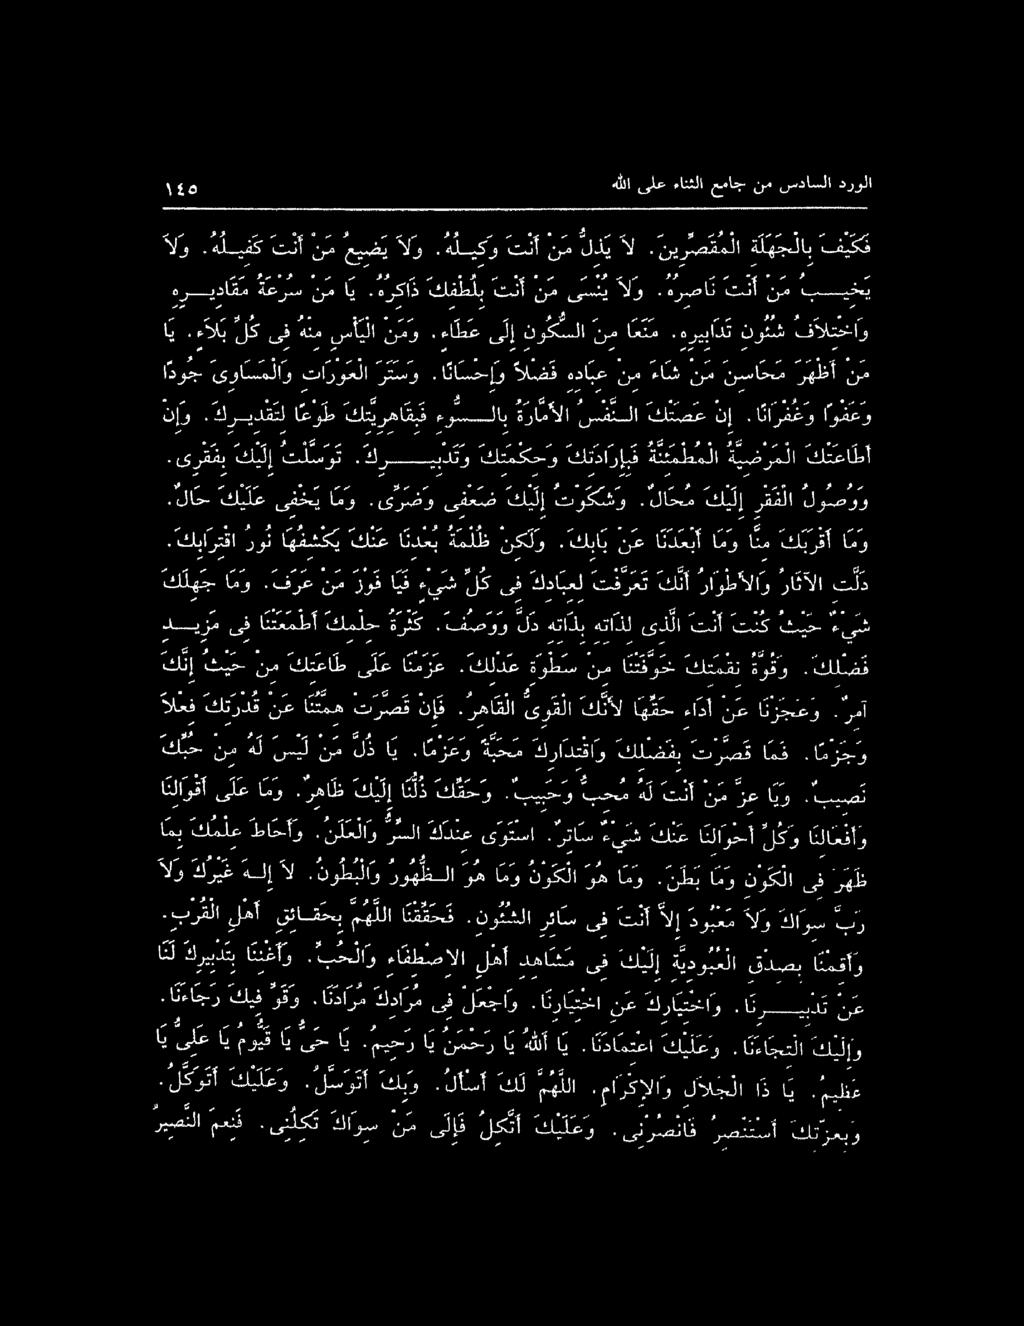 الورد السادس من جامع الثناء على الله
١٤٥
فَكَيْفَ بِالْجَهَلَةِ الْمُقَصِّرِينَ. لاَ يَذِلُّ مَنْ أَنْتَ وَكِيلُهُ. وَلاَ يَضِيعُ مَنْ أَنْتَ كَفِيلُهُ. وَلاَ
يَخِيبُ مَنْ أَنْتَ نَاصِرُهُ. وَلاَ يُنْسَى مَنْ أَنْتَ بِلُطْفِكَ ذَاكِرُهُ. يَا مَنْ سُرْعَةُ مَقَادِيرِهِ
وَاخْتِلاَفُ شُئُونِ تَدَابِيرِهِ. مَنَعَا مِنَ السُّكُونِ إِلَى عَطَاءٍ. وَمَنْ الْيَأْسِ مِنْهُ فِى كُلِّ بَلاَءٍ. يَا
مَنْ أَظْهَرَ مَحَاسِنَ مَنْ شَاءَ مِنْ عِبَادِهِ فَضْلاً وَإِحْسَانًا. وَسَتَرَ الْعَوْرَاتِ وَالْمَسَاوِىَ جُودًا
وَعَفْوًا وَغُفْرَانًا. إِنْ عَصَتْكَ النَّفْسُ الأَمَّارَةُ بِالسُّوءِ فَبِقَاهِرِيَّتِكَ طَوْعًا لِتَقْدِيرِكَ. وَإِنْ
أَطَاعَتْكَ الْمَرْضِيَّةُ الْمُطْمَئِنَّةُ فَبِإِرَادَتِكَ وَحِكْمَتِكَ وَتَدْبِيرِكَ. تَوَسَّلْتُ إِلَيْكَ بِفَقْرِى.
وَوُصُولُ الْفَقْرِ إِلَيْكَ مُحَالٌ. وَشَكَوْتُ إِلَيْكَ ضَعْفِى وَضَرِّى. وَمَا يَخْفَى عَلَيْكَ حَالٌ.
وَمَا أَقْرَبَكَ مِنَّا وَمَا أَبْعَدَنَا عَنْ بَابِكَ. وَلَكِنْ ظُلْمَةُ بُعْدِنَا عَنْكَ يَكْشِفُهَا نُورُ اقْتِرَابِكَ.
دَلَّتِ الآثَارُ وَالأَطْوَارُ أَنَّكَ تَعَرَّفْتَ لِعِبَادِكَ فِى كُلِّ شَيْءٍ فَيَا فَوْزَ مَنْ عَرَفَ. وَمَا جَهِلَكَ
شَيْءٌ حَيْثُ كُنْتَ أَنْتَ الَّذِى لِذَاتِهِ بِذَاتِهِ دَلَّ وَوَصَفَ. كَثْرَةُ حِلْمِكَ أَطْمَعَتْنَا فِى مَزِيدِ
فَضْلِكَ. وَقُوَّةُ نِقْمَتِكَ خَوَّفَتْنَا مِنْ سَطْوَةِ عَدْلِكَ. عَزَمْنَا عَلَى طَاعَتِكَ مِنْ حَيْثُ إِنَّكَ
آمِرٌ. وَعَجَزْنَا عَنْ أَدَاءِ حَقِّهَا لأَنَّكَ الْقَوِىُّ الْقَاهِرُ. فَإِنْ قَصَّرَتْ هِمَّتُنَا عَنْ قُدْرَتِكَ فِعْلاً
وَجَزْمًا. فَمَا قَصَّرَتْ بِفَضْلِكَ وَاقْتِدَارِكَ مَحَبَّةً وَعَزْمًا. يَا ذُلَّ مَنْ لَيْسَ لَهُ مِنْ حُبِّكَ
نَصِيبٌ. وَيَا عِزَّ مَنْ أَنْتَ لَهُ مُحِبٌّ وَحَبِيبٌ. وَحَقِّكَ ذُلُّنَا إِلَيْكَ ظَاهِرٌ. وَمَا عَلَى أَقْوَالِنَا
وَأَفْعَالِنَا وَكُلِّ أَحْوَالِنَا عَنْكَ شَيْءٌ سَاتِرٌ. اسْتَوَى عِنْدَكَ السِّرُّ وَالْعَلَنُ. وَأَحَاطَ عِلْمُكَ بِمَا
ظَهَرَ فِى الْكَوْنِ وَمَا بَطَنَ. وَمَا هُوَ الْكَوْنُ وَمَا هُوَ الظُّهُورُ وَالْبُطُونُ. لاَ إِلَهَ غَيْرُكَ وَلاَ
رَبَّ سِوَاكَ وَلاَ مَعْبُودَ إِلاَّ أَنْتَ فِى سَائِرِ الشُّئُونِ. فَحَقِّقْنَا اللَّهُمَّ بِحَقَائِقِ أَهْلِ الْقُرْبِ.
وَأَقِمْنَا بِصِدْقِ الْعُبُودِيَّةِ إِلَيْكَ فِى مَشَاهِدِ أَهْلِ الاِصْطِفَاءِ وَالْحُبِّ. وَأَغْنِنَا بِتَدْبِيرِكَ لَنَا
عَنْ تَدْبِيرِنَا. وَاخْتِيَارِكَ عَنِ اخْتِيَارِنَا. وَاجْعَلْ فِى مُرَادِكَ مُرَادَنَا. وَقَوِّ فِيكَ رَجَاءَنَا.
وَإِلَيْكَ الْتِجَاءَنَا. وَعَلَيْكَ اعْتِمَادَنَا. يَا أَللهُ يَا رَحْمَنُ يَا رَحِيمُ. يَا حَىُّ يَا قَيُّومُ يَا عَلِىُّ يَا
عَظِيمُ. يَا ذَا الْجَلاَلِ وَالإِكْرَامِ. اللَّهُمَّ لَكَ أَسْأَلُ. وَبِكَ أَتَوَسَّلُ. وَعَلَيْكَ أَتَوَكَّلُ.
وَبِعِزَّتِكَ أَسْتَنْصِرُ فَانْصُرْنِى. وَعَلَيْكَ أَتَّكِلُ فَإِلَى مَنْ سِوَاكَ تَكِلُنِى. فَنِعْمَ النَّصِيرُ